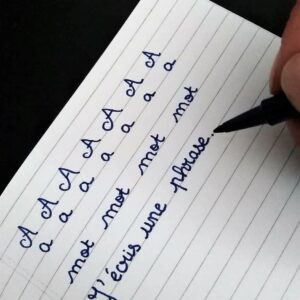 A A A A A A A
a a a a a a a
mot mot mot mot
j'écris une phrase.